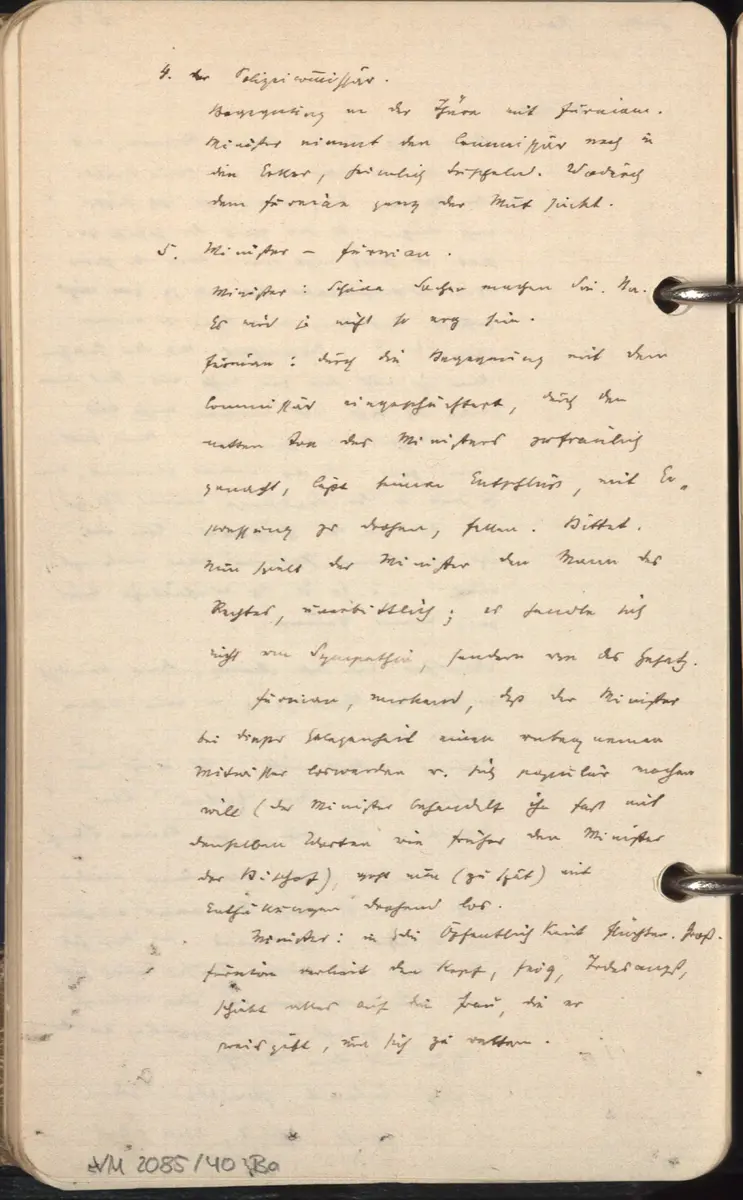 4. der Polizeicommissär.
Begegnung an der Thüre mit Furnian.
Minister nimmt den Commissär noch in
den Erker, heimlich tuschelnd. Wodurch
dem Furnian ganz der Mut sinkt.
5. Minister – Furnian.
Minister: Schöne Sachen machen Sie. Na.
Es wird ja nicht so arg sein.
Furnian: durch die Begegnung mit dem
Commissär eingeschüchtert, durch den
netten Ton des Ministers zutraulich
gemacht, läßt seinen Entschluss, mit Er-
pressung zu drohen, fallen. Bittet.
Nun spielt der Minister den Mann des
Rechtes, unerbittlich; es handle sich
nicht um Sympathie, sondern um das Gesetz.
Furnian, merkend, daß der Minister
bei dieser Gelegenheit einen unbequemen
Mitwisser loswerden u. sich populär machen
will (der Minister behandelt ihn fast mit
denselben Worten wie früher den Minister
der Bischof), geht nun (zu spät) mit
Enthüllungen drohend los.
Minister: in die Öffentlichkeit flüchten.
Furnian verliert den Kopf, feig, Todesangst,
schiebt alles auf die Frau, die er
preisgibt, um sich zu retten.
NM 2085/40 Ba